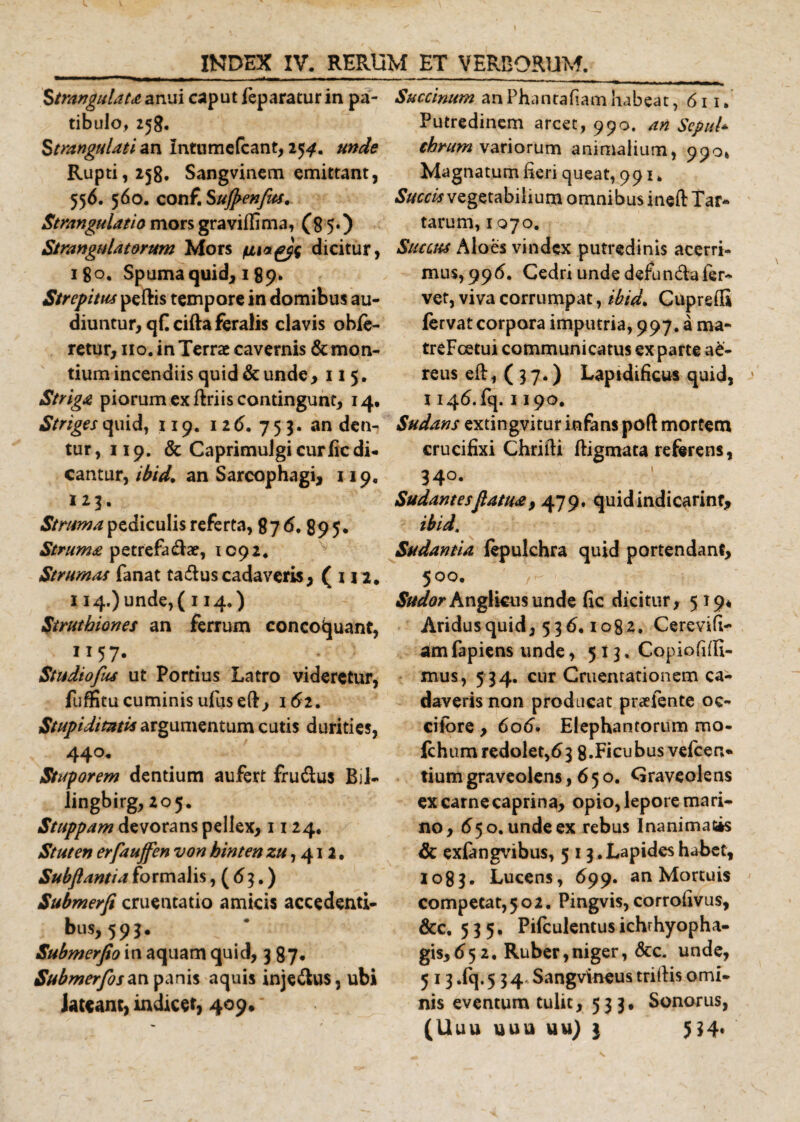 INDEX IV. RERUM ET VERBORUM.
Strangulatæ anui caput ſeparatur in pa-
tibulo, 258.
Strangulati an Intumeſcant, 254. unde
Rupti, 258. Sangvinem emittant,
556. 560. conf. Suſpenſus.
Strangulatio mors graviſſima, (85.)
Strangulatorum Mors dicitur,
180. Spuma quid, 189.
Strepitus peſtis tempore in domibus au-
diuntur, qſ. ciſta feralis clavis obſe-
retur, 110. in Terræ cavernis & mon-
tium incendiis quid & unde, 115.
Strigæ piorum ex ſtriis contingunt, 14.
Striges quid, 119. 126. 753. an den-
tur, 119. & Caprimulgi cur ſic di-
cantur, ibid. an Sarcophagi, 119.
123.
Struma pediculis referta, 876. 895.
Strumæ petrefactæ, 1092.
Strumas ſanat tactus cadaveris, (112.
114.) unde, (114.)
Struthiones an ferrum concoquant,
1157.
Studioſus ut Portius Latro videretur,
ſuffitu cuminis uſus eſt, 162.
Stupiditatis argumentum cutis durities,
440.
Stuporem dentium aufert fructus Bil-
lingbirg, 205.
Stuppam devorans pellex, 1124.
Stuten erſauffen von hinten zu, 412.
Subſtantia formalis, (63.)
Submerſi cruentatio amicis accedenti-
bus, 593.
Submerſio in aquam quid, 387.
Submerſos an panis aquis injectus, ubi
lateant, indicet, 409.
Succinum an Phantaſiam habeat, 611.
Putredinem arcet, 990. an Sepul-
chrum variorum animalium, 990.
Magnatum fieri queat, 991.
Succis vegetabilium omnibus ineſt Tar-
tarum, 1070.
Succus Aloës vindex putredinis acerri-
mus, 996. Cedri unde defuncta ſer-
vet, viva corrumpat, ibid. Cupreſſi
ſervat corpora imputria, 997. à ma-
tre Fœtui communicatus ex parte aë-
reus eſt, (37.) Lapidificus quid,
1146. ſq. 1190.
Sudans extingvitur infans poſt mortem
crucifixi Chriſti ſtigmata referens,
340.
Sudantes ſtatuæ, 479. quid indicarint,
ibid.
Sudantia ſepulchra quid portendant,
500.
Sudor Anglicus unde ſic dicitur, 519.
Aridus quid, 536. 1082. Cereviſi-
am ſapiens unde, 513. Copioſiſſi-
mus, 534. cur Cruentationem ca-
daveris non producat præſente oc-
ciſore, 606. Elephantorum mo-
ſchum redolet, 638. Ficubus veſcen-
tium graveolens, 650. Graveolens
ex carne caprina, opio, lepore mari-
no, 650. unde ex rebus Inanimatis
& exſangvibus, 513. Lapides habet,
1083. Lucens, 699. an Mortuis
competat, 502. Pingvis, corroſivus,
&c. 535. Piſculentus ichthyopha-
gis, 652. Ruber, niger, &c. unde,
513. ſq. 534. Sangvineus triſtis omi-
nis eventum tulit, 533. Sonorus,
(Uuu uuu uu) 3 534.